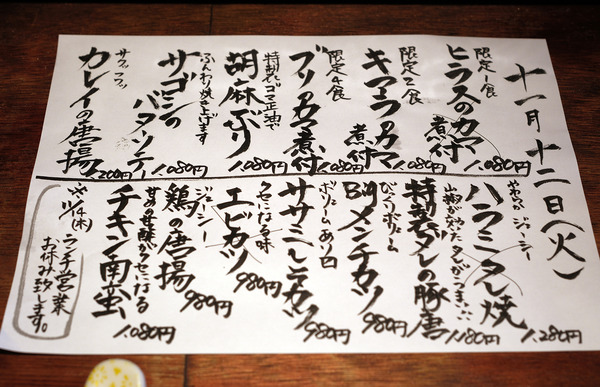 十一月十二日(火)
限定一食
ヒラスのカマ煮付 1,080円
限定2食
キツラのカマ煮付 1,080円
限定4食
ブリのカマ煮付 1,080円
特製ゴマ正油で
胡麻ぶり 1,080円
ふんわり焼き上げます
サゴシのバターソテー 1,080円
サクッフワッ
カレイの唐揚 1,200円
やわらか ジューシー
ハラミタレ焼 1,280円
山椒が効いたタレがうまい
特製ダレの豚唐 1,180円
びっくりボリューム
Bigメンチカツ 980円
ボリュームあり
ササミレモンカツ 980円
クセになる味
エビカツ 980円
ジューシー
鶏の唐揚 980円
クセになる
チキン南蛮 1,080円
11/14(木)
ランチ営業
お休み致します。